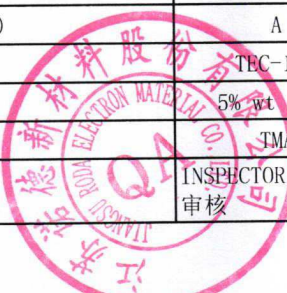 )
A
TEC-
5% wt
TMA
INSPECTOR
审核
江苏诺德新材料股份有限公司
JIANGSU RODA ELECTRON MATERIAL CO., LTD.
QA